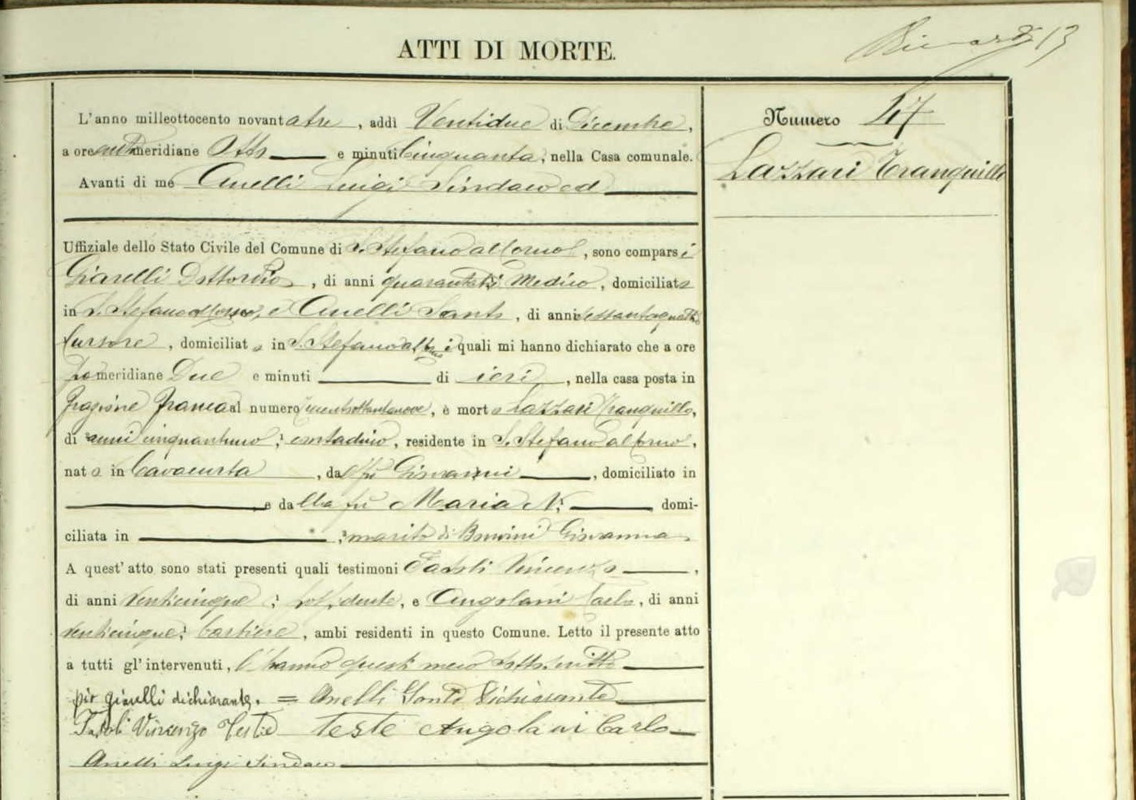 ATTI DI MORTE.
13
Numero 47
Lazzari Tranquillo
L'anno milleottocento novantatre, addì Ventidue di Dicembre,
a ore antimeridiane Otto e minuti Cinquanta, nella Casa comunale.
Avanti di me Anelli Luigi Sindaco ed
Uffiziale dello Stato Civile del Comune di S. Stefano al Corno, sono comparsi
Giarelli Dottor Pio, di anni Medico, domiciliato
in S. Stefano al Corno, e Anelli Santo, di anni sessantaquattro
Cursore, domiciliato in S. Stefano al Corno i quali mi hanno dichiarato che a ore
Pomeridiane Due e minuti di ieri, nella casa posta in
Frazione Franca al numero centottantanove, è morto Lazzari Tranquillo,
di anni cinquantuno, contadino, residente in S. Stefano al Corno,
nato in Cavacurta, dal fu Giovanni, domiciliato in
e dalla fu Maria N: domi-
ciliata in ; marito di Giovanna
A quest'atto sono stati presenti quali testimoni Fasoli Vincenzo,
di anni venticinque; possidente, e Angolani Carlo, di anni
venticinque; barbiere, ambi residenti in questo Comune. Letto il presente atto
a tutti gl'intervenuti, l'hanno questi meco sottoscritto
pio giarelli dichiarante. = Anelli Santo Dichiarante
Fasoli Vincenzo Teste teste Angolani Carlo
Anelli Luigi Sindaco